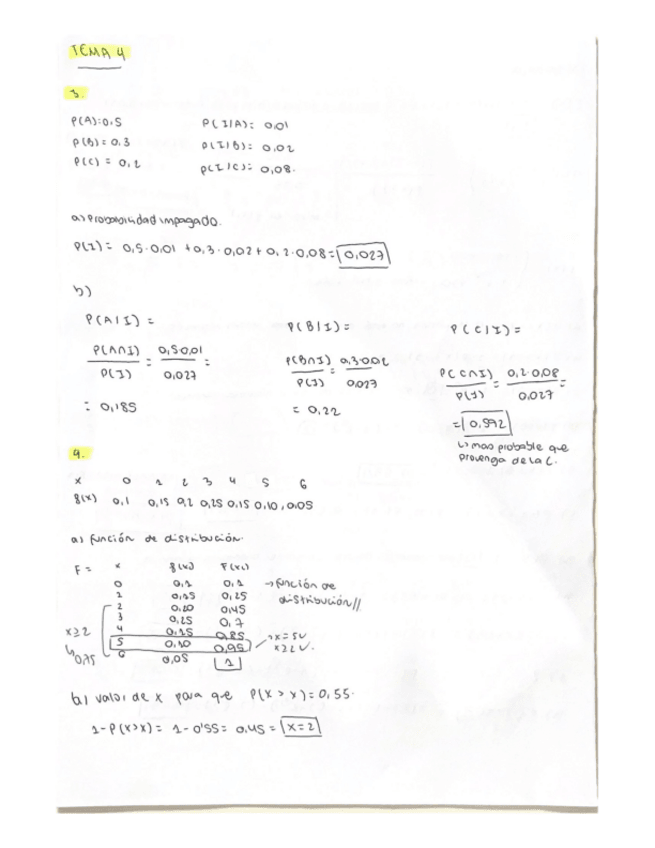 TEMA 4
3.
P(A)=0,5 P(I/A)= 0,01
P(B)= 0,3 P(I/B)= 0,02
P(C)= 0,2 P(I/C)= 0,08.
a) probabilidad impagado.
P(I)= 0,5·0,01 +0,3·0,02+0,2·0,08= 0,027
b)
P(A/I) = P(B/I)= P(C/I)=
P(A∩I) = 0,5·0,01 = P(B∩I) = 0,3·0,02 P(C∩I) = 0,2·0,08 =
P(I) 0,027 P(I) 0,027 P(I) 0,027
= 0,185 = 0,22 = 0,592
↳ mas probable que
provenga de la C.
9.
x 0 1 2 3 4 5 6
f(x) 0,1 0,15 0,2 0,25 0,15 0,10, 0,05
a) función de distribución.
F = x f(x) F(x)
0 0,1 0,1 → función de
1 0,15 0,25 distribución//
2 0,20 0,45
3 0,25 0,7
x≥2 4 0,15 0,85
↳ 0,75 5 0,10 0,95 x=5✓
6 0,05 1 x≥2✓.
b) valor de x para que P(X>x)=0,55.
1-P(X>x)= 1-0'55= 0,45 = x=2